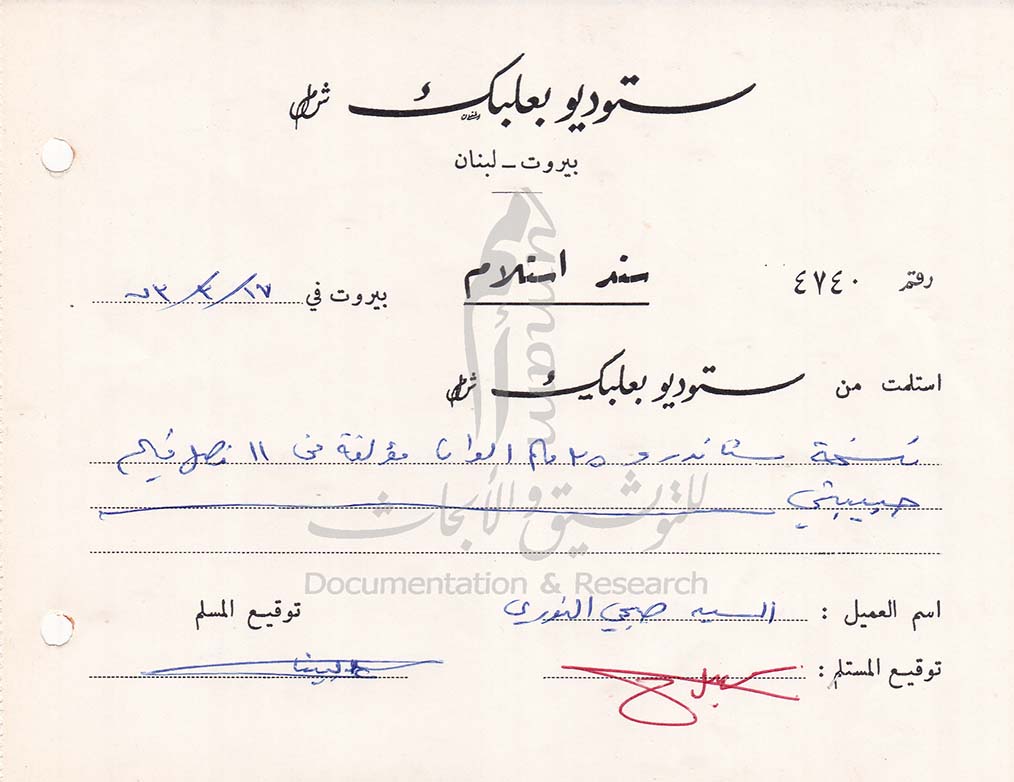 ستوديو بعلبك شمل
بيروت - لبنان
رقم ٤٧٤٠
سند استلام
بيروت في ١٧/٤/٧٣
استلمت من ستوديو بعلبك شمل
نسخة ستاندرد ٣٥ ملم الوان مؤلفة من ١١ فصل فيلم
حبيبتي
اسم العميل : السيد صبحي النوري
توقيع المسلم
توقيع المستلم :
للتوثيق والأبحاث
Documentation & Research